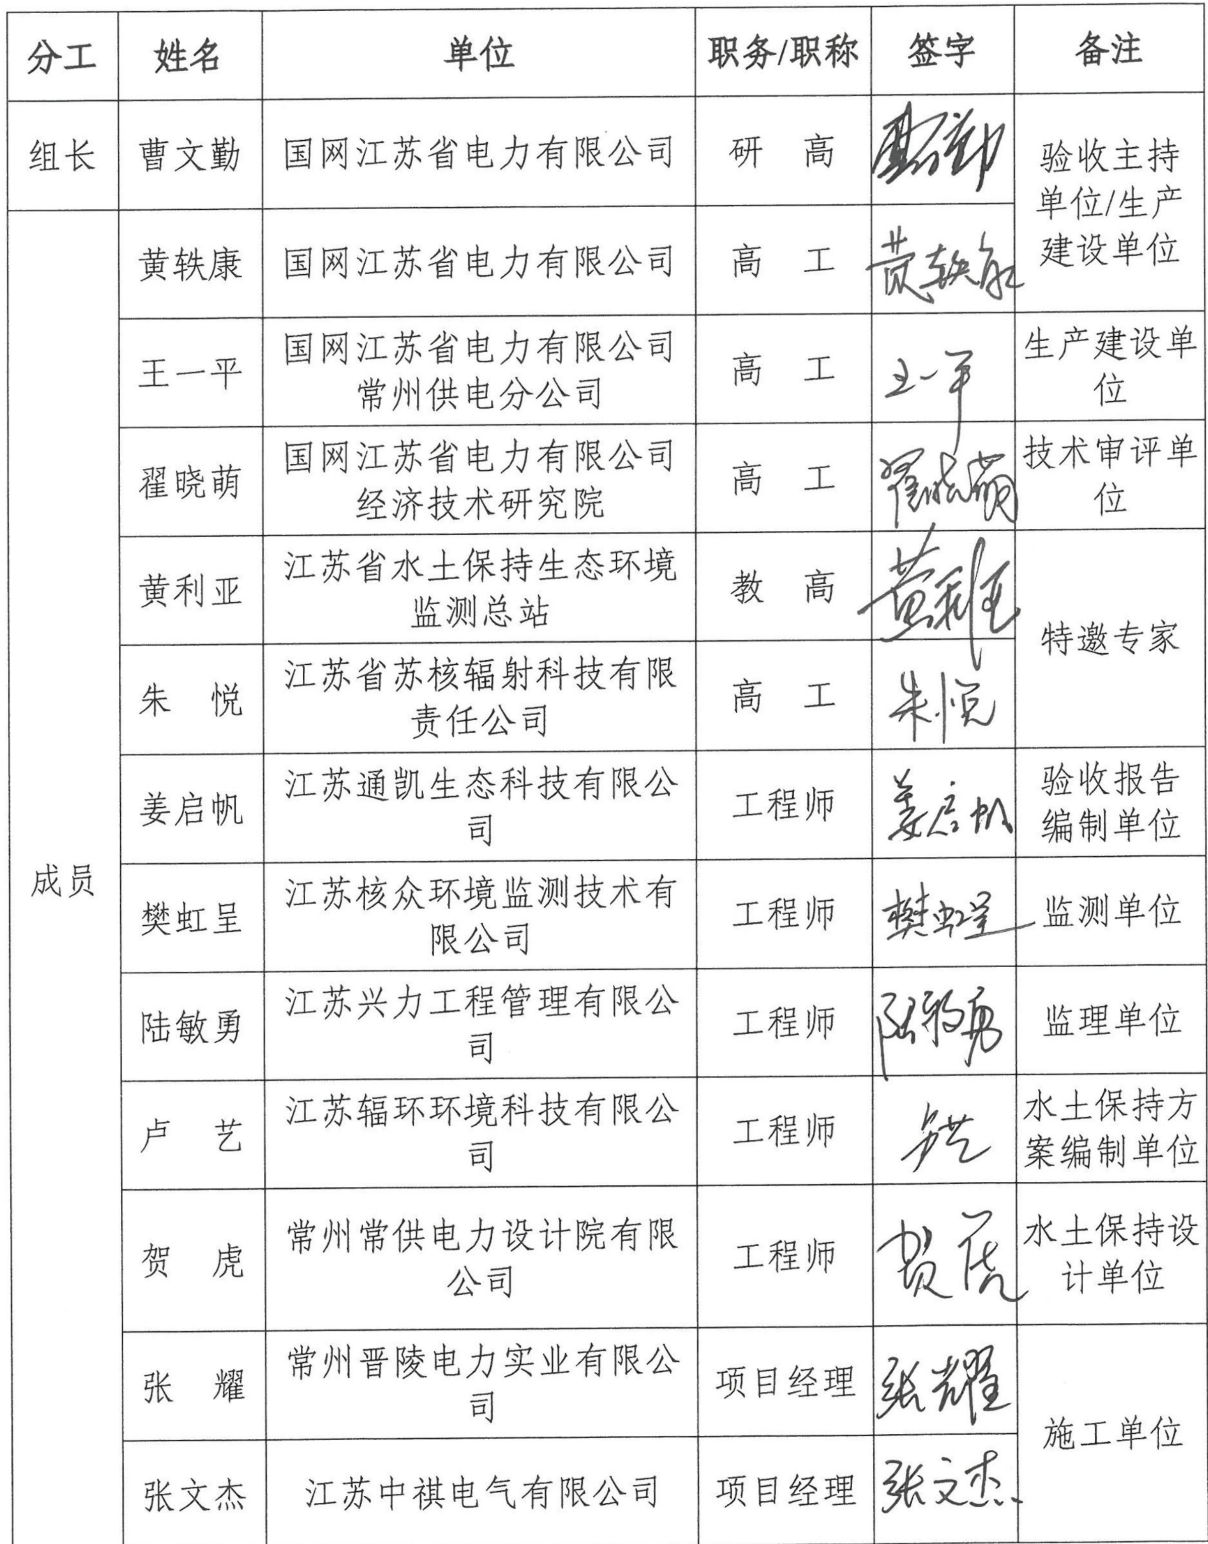 分工 姓名 单位 职务/职称 签字 备注
组长 曹文勤 国网江苏省电力有限公司 研 高 曹文勤
验收主持
单位/生产
建设单位
成员
黄轶康 国网江苏省电力有限公司 高 工 黄轶康
王一平 国网江苏省电力有限公司
常州供电分公司
高 工 王一平 生产建设单
位
翟晓萌 国网江苏省电力有限公司
经济技术研究院
高 工 翟晓萌 技术审评单
位
黄利亚 江苏省水土保持生态环境
监测总站
教 高 黄利亚
特邀专家
朱 悦 江苏省苏核辐射科技有限
责任公司
高 工 朱悦
姜启帆 江苏通凯生态科技有限公
司
工程师 姜启帆 验收报告
编制单位
樊虹呈 江苏核众环境监测技术有
限公司
工程师 樊虹呈 监测单位
陆敏勇 江苏兴力工程管理有限公
司
工程师 陆敏勇 监理单位
卢 艺 江苏辐环环境科技有限公
司
工程师 卢艺 水土保持方
案编制单位
贺 虎 常州常供电力设计院有限
公司
工程师 贺虎 水土保持设
计单位
张 耀 常州晋陵电力实业有限公
司
项目经理 张耀
施工单位
张文杰 江苏中祺电气有限公司 项目经理 张文杰